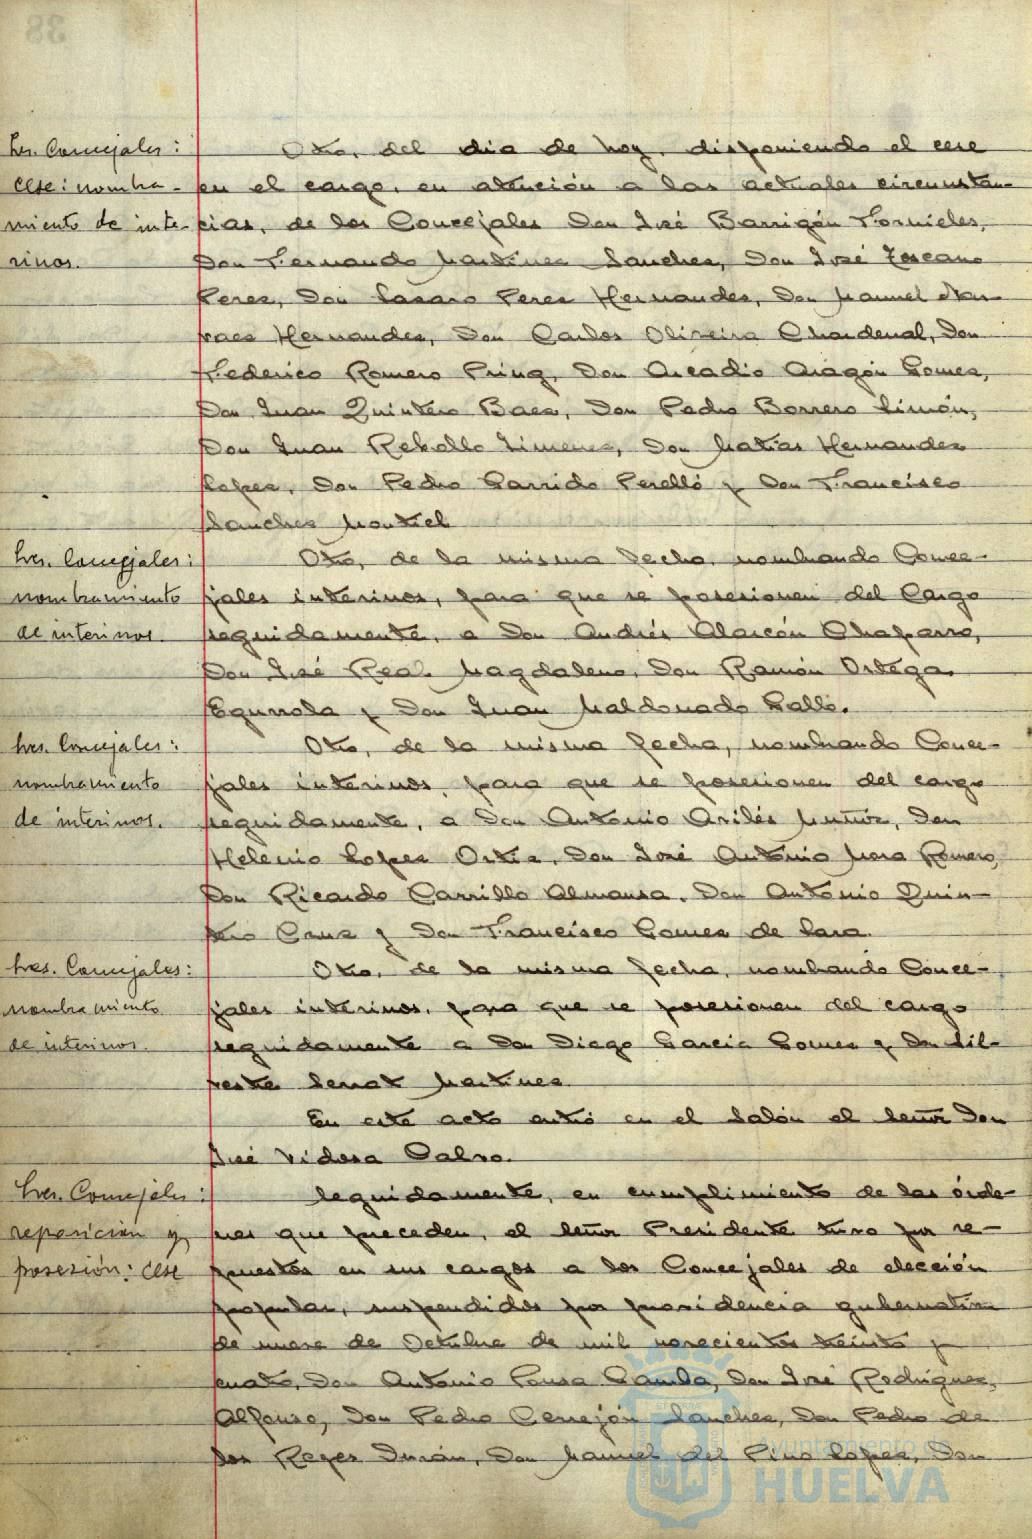 Sres. Concejales:
cese: nombra-
miento de inte-
rinos.
Otro, del dia de hoy, disponiendo el cese
en el cargo, en atención a las actuales circunstan-
cias, de los Concejales Don José Barrigón Fornieles,
Don Fernando Martinez Sanchez, Don José Toscano
Perez, Don Lazaro Perez Hernandez, Don Manuel Nar-
vaez Hernandez, Don Carlos Oliveira Chardenal, Don
Federico Romero Pring, Don Arcadio Aragón Gomez,
Don Juan Quintero Baez, Don Pedro Borrero Limón,
Don Juan Rebollo Jimenez, Don Matías Hernandez
Lopez, Don Pedro Garrido Perelló y Don Francisco
Sanchez Montiel
Sres. Concejales:
nombramiento
de interinos.
Otro, de la misma fecha, nombrando Conce-
jales interinos, para que se posesionen del Cargo
seguidamente, a Don Andrés Alarcón Chaparro,
Don José Real Magdaleno, Don Ramón Ortega
Egurrola y Don Juan Maldonado Gallo.
Sres. Concejales:
nombramiento
de interinos.
Otro, de la misma fecha, nombrando Conce-
jales interinos, para que se posesionen del cargo
seguidamente, a Don Antonio Avilés Muñoz, Don
Helenio Lopez Ortiz, Don José Antonio Mora Romero,
Don Ricardo Carrillo Almansa, Don Antonio Quin-
tero Cruz y Don Francisco Gomez de Lara.
Sres. Concejales:
nombramiento
de interinos.
Otro, de la misma fecha, nombrando Conce-
jales interinos, para que se posesionen del cargo
seguidamente a Don Diego Garcia Gomez y Don Sil-
vestre Serrat Martinez
En este acto entró en el Salón el señor Don
José Vidosa Calvo.
Sres. Concejales:
reposición y
posesión: cese
Seguidamente, en cumplimiento de las órde-
nes que preceden, el señor Presidente tuvo por re-
puestos en sus cargos a los Concejales de elección
popular, suspendidos por providencia gubernativa
de nueve de Octubre de mil novecientos treinta y
cuatro, Don Antonio Pousa Camba, Don José Rodriguez
Alfonso, Don Pedro Cerrejón Sanchez, Don Pedro de
los Reyes Durán, Don Manuel del Pino Lopez, Don
Ayuntamiento de
HUELVA